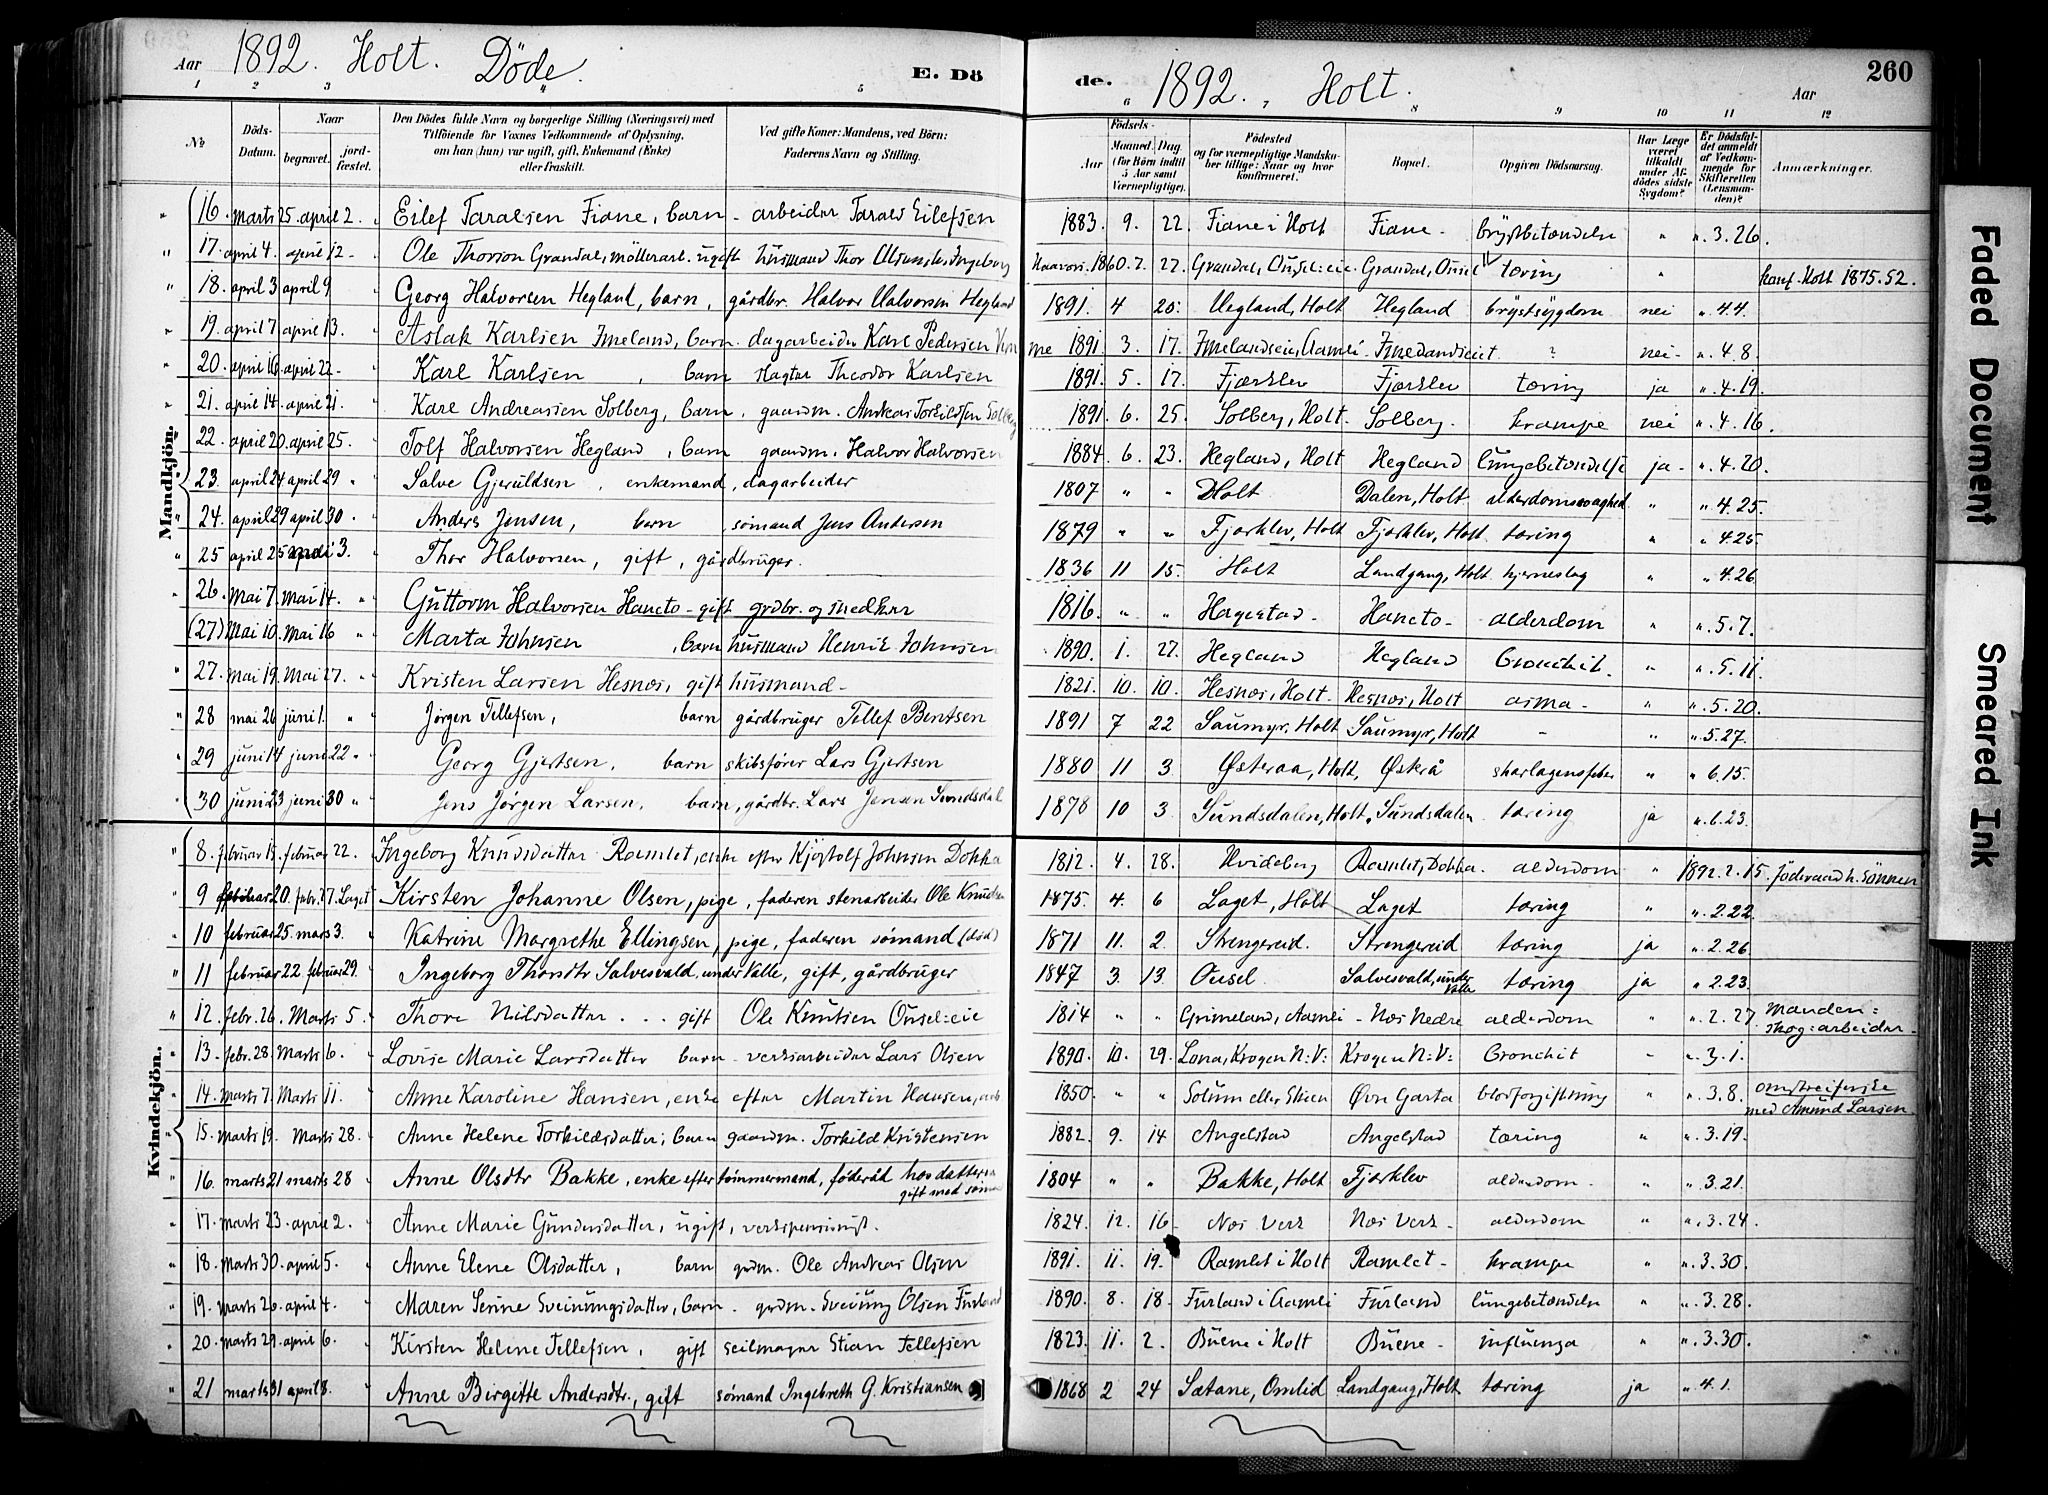 Aar 1892. Holt. Döde. E. Dö
de. 1892. Holt. Aar 260
1 2 3 4 5 6 7 8 9 10 11 12
No Döds-Datum. Naar begravet. jord-fæstet.
Den Dödes fulde Navn og borgerlige Stilling (Næringsvei) med Tilföiende for Voxnes Vedkommende af Oplysning, om han (hun) var ugift, gift, Enkemand (Enke) eller fraskilt.
Ved gifte Koner: Mandens, ved Börn: Faderens Navn og Stilling.
Födsels- Aar Maaned. Dag. (for Börn indtil 5 Aar samt Værnepligtige).
Födested og for værnepligtige Mandskaber tillige: Naar og hvor konfirmeret.
Bopæl.
Opgiven Dödsaarsag.
Har Læge været tilkaldt under Afdödes sidste Sygdom?
Er Dödsfaldet anmeldt af Vedkommende for Skifteretten (Lensmanden)?
Anmærkninger.
Mandkjön.
16. marts 25. april 2. Eilef Taralsen Fiane, barn - arbeider Tarald Eilefsen 1883. 9. 22. Fiane i Holt Fiane - brystbetændelse " ". 3. 26.
17. april 4 april 12 - Ole Thorson Grandal, möllerarb. ugift husmand Thor 1860. 7. 27. Grandal, Ousel: eie. Grandal, Ousel tæring " konf. Holt 1875. 52.
18. april 3 april 9 Georg Halvorsen Hegland, barn, gårdbr. Halvor Halvorsen Hegland 1891. 4 20. Hegland, Holt Hegland brystsygdom nei ". 4.4.
19. april 7 april 13. Aslak Karlsen Imeland, barn - dagarbeider Karl Pedersen 1891. 3. 17. Imelandseie, Aamli - ? nei - ". 4. 8.
20. april 16 april 22 - Karl Karlsen, barn slagter Theodor Karlsen 1891. 5. 17. Fjærklev Fjærklev tæring ja ". 4. 19.
21. april 14. april 21. Karl Andreassen Solberg, barn, gaardm. Andreas Torkildsen Solberg 1891. 6. 25. Solberg, Holt. Solberg. krampe nei ". 4. 16.
22. april 20. april 25. Tolf Halvorsen Hegland, barn gaardm. Halvor Halvorsen 1884. 6. 23. Hegland, Holt Hegland lungebetændelse ja - ". 4. 20.
23. april 24 april 29 " Salve Gjeruldsen, enkemand, dagarbeider 1807 " " Holt Dalen, Holt alderdomssvaghed " ". 4. 25.
24. april 29 april 30. " Anders Jensen, barn, sömand Jens Andersen 1879 " " Fjærklev, Holt Fjærklev, Holt tæring " ". 4. 25.
25 april 25 mai 3. " Thor Halvorsen, gift, gårdbruger. 1836 11 15. Holt Landgang, Holt hjerneslag " ". 4. 26.
26. Mai 7. Mai 14. " Guttorm Halvorsen Hancto - gift grdbr. og snedker 1816. " " Hagestad - Hancto - alderdom " ". 5. 7.
(27) Mai 10. Mai 16 " Marta Johnsen, barn husmand Henrik Johnsen 1890. 1. 27. Hegland Hegland bronchit. " ". 5. 11.
27. Mai 19. Mai 27. " Kristen Larsen Hesnæs, gift husmand - 1821. 10. 10. Hesnæs, Holt. Hesnæs, Holt asma - " ". 5. 20.
28 mai 26 juni 1. " Jørgen Tellefsen, barn gårdbruger Tellef Bentsen 1891 7 22 Saumyr, Holt Saumyr, Holt - " ". 5. 27.
29 juni 14 juni 22 " Georg Gjertsen, barn skibsfører Lars Gjertsen 1880 11 3 Østeraa, Holt, Østerå skarlagensfeber " ". 6. 15.
30 juni 23 juni 30 " Jens Jørgen Larsen, barn, gårdbr. Lars Jensen Sundsdal 1878 10 3 Sundsdalen, Holt, Sundsdalen tæring ja ". 6. 23.
Kvindekjön.
8. februar 15. februar 22. Ingeborg Knudsdatter Ramlet, enke efter Kjøstolf Johnsen Dokka 1812. 4. 28. Hvideberg Ramlet, Dokka - alderdom " 1892. 2. 15. föderaad h. sönnen
9 februar 20. febr. 27. Laget Kirsten Johanne Olsen, pige, faderen stenarbeider Ole Knudsen 1875. 4. 6 Laget, Holt Laget tæring " ". 2. 22.
10 februar 25. mars 3. " Katrine Margrethe Ellingsen, pige, faderen sömand (död) 1871 11. 2. Strengereid. Strengereid tæring ja ". 2. 26
11 februar 22. februar 29. Ingeborg Thorsdtr Salvesvald, under Valle, gift, gårdbruger 1847 3. 13. Ousel Salvesvald, under Valle tæring ja ". 2. 23.
12. febr. 26. Marts 5. Thore Nilsdatter - - - gift Ole Knutsen Ousel: eie 1814 " " Grimeland, Aamli - Næs Nedre alderdom " ". 2. 27 Manden: skog: arbeider -
13. febr. 28. Marts 6. Lovise Marie Larsdatter barn - verksarbeider Lars Olsen 1890. 10. 29. Lona, Krogen N: V: Krogen N: V: bronchit - ". 3. 1.
14. marts 7. Marts 11. Anne Karoline Hansen, enke efter Martin Hansen, 1850. " " Solum eller Skien Øvr Garta blodforgiftning " ". 3. 8. omstreiferske med Amund Larsen.
15. Marts 19. Marts 28. Anne Helene Torkildsdatter, barn gaardm. Torkild Kristensen 1882. 9. 14 Angelstad Angelstad tæring " ". 3. 19.
16. marts 21 marts 28 Anne Olsdtr Bakke, enke efter tømmermand, føderåd hos datteren gift med sömand 1804 " " Bakke, Holt Fjærklev alderdom - " ". 3. 21.
17. marts 23. april 2. Anne Marie Gundersdatter, ugift, verkspensionist. 1824. 12. 16. Næs Verk Næs Verk - alderdom " ". 3. 24.
18. Marts 30. april 5. Anne Elene Olsdatter, barn grdm. Ole Andreas Olsen 1891. 11. 19. Ramlet i Holt Ramlet - krampe " ". 3. 30.
19. marts 26. april 4. Maren Serine Sveinungsdatter, barn - grdm. Sveinung Olsen Furland 1890. 8. 18. Furland i Aamli Furland lungebetændelse " ". 3. 28.
20. marts 29. april 6. Kirsten Helene Tellefsen, gift seilmager Stian Tellefsen 1823. 11. 2. Buene i Holt Buene - influenza " ". 3. 30.
21 marts 31 april 8. Anne Birgitte Andersdtr., gift sömand Ingebreth G. Kristiansen 1868 2 24 Sætane, Omlid Landgang, Holt tæring ja ". 4. 1.
Faded Document
Smeared Ink